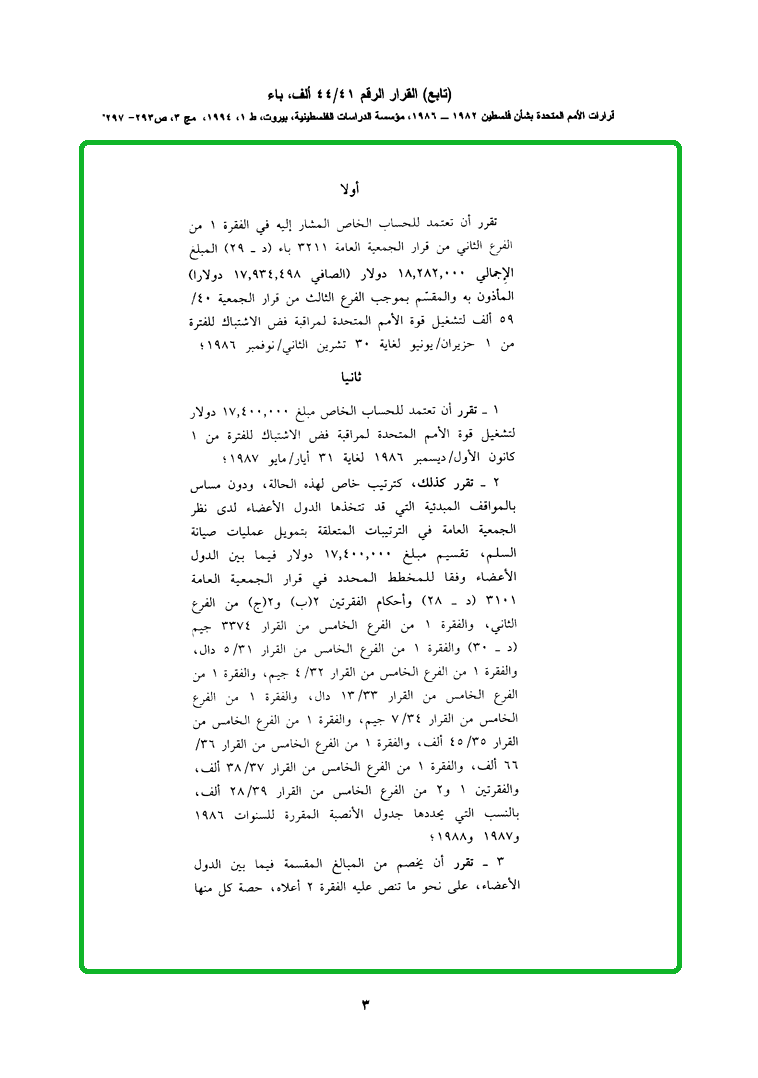 (تابع) القرار الرقم ٤٤/٤١ ألف، باء
قرارات الأمم المتحدة بشأن فلسطين ١٩٨٢ ــ ١٩٨٦، مؤسسة الدراسات الفلسطينية، بيروت، ط ١، ١٩٩٤، مج ٣، ص٢٩٣- ٢٩٧"
أولا
تقرر أن تعتمد للحساب الخاص المشار إليه في الفقرة ١ من
الفرع الثاني من قرار الجمعية العامة ٣٢١١ باء (د ـ ٢٩) المبلغ
الإجمالي ١٨,٢٨٢,٠٠٠ دولار (الصافي ١٧,٩٣٤,٤٩٨ دولارا)
المأذون به والمقسّم بموجب الفرع الثالث من قرار الجمعية ٤٠/
٥٩ ألف لتشغيل قوة الأمم المتحدة لمراقبة فض الاشتباك للفترة
من ١ حزيران/يونيو لغاية ٣٠ تشرين الثاني/نوفمبر ١٩٨٦؛
ثانيا
١ ـ تقرر أن تعتمد للحساب الخاص مبلغ ١٧,٤٠٠,٠٠٠ دولار
لتشغيل قوة الأمم المتحدة لمراقبة فض الاشتباك للفترة من ١
كانون الأول/ديسمبر ١٩٨٦ لغاية ٣١ أيار/مايو ١٩٨٧؛
٢ ـ تقرر كذلك، كترتيب خاص لهذه الحالة، ودون مساس
بالمواقف المبدئية التي قد تتخذها الدول الأعضاء لدى نظر
الجمعية العامة في الترتيبات المتعلقة بتمويل عمليات صيانة
السلم، تقسيم مبلغ ١٧,٤٠٠,٠٠٠ دولار فيما بين الدول
الأعضاء وفقا للمخطط المحدد في قرار الجمعية العامة
٣١٠١ (د ـ ٢٨) وأحكام الفقرتين ٢(ب) و٢(ج) من الفرع
الثاني، والفقرة ١ من الفرع الخامس من القرار ٣٣٧٤ جيم
(د ـ ٣٠) والفقرة ١ من الفرع الخامس من القرار ٥/٣١ دال،
والفقرة ١ من الفرع الخامس من القرار ٤/٣٢ جيم، والفقرة ١ من
الفرع الخامس من القرار ١٣/٣٣ دال، والفقرة ١ من الفرع
الخامس من القرار ٧/٣٤ جيم، والفقرة ١ من الفرع الخامس من
القرار ٤٥/٣٥ ألف، والفقرة ١ من الفرع الخامس من القرار ٣٦/
٦٦ ألف، والفقرة ١ من الفرع الخامس من القرار ٣٨/٣٧ ألف،
والفقرتين ١ و٢ من الفرع الخامس من القرار ٢٨/٣٩ ألف،
بالنسب التي يحددها جدول الأنصبة المقررة للسنوات ١٩٨٦
و١٩٨٧ و١٩٨٨؛
٣ ـ تقرر أن يخصم من المبالغ المقسمة فيما بين الدول
الأعضاء، على نحو ما تنص عليه الفقرة ٢ أعلاه، حصة كل منها
٣